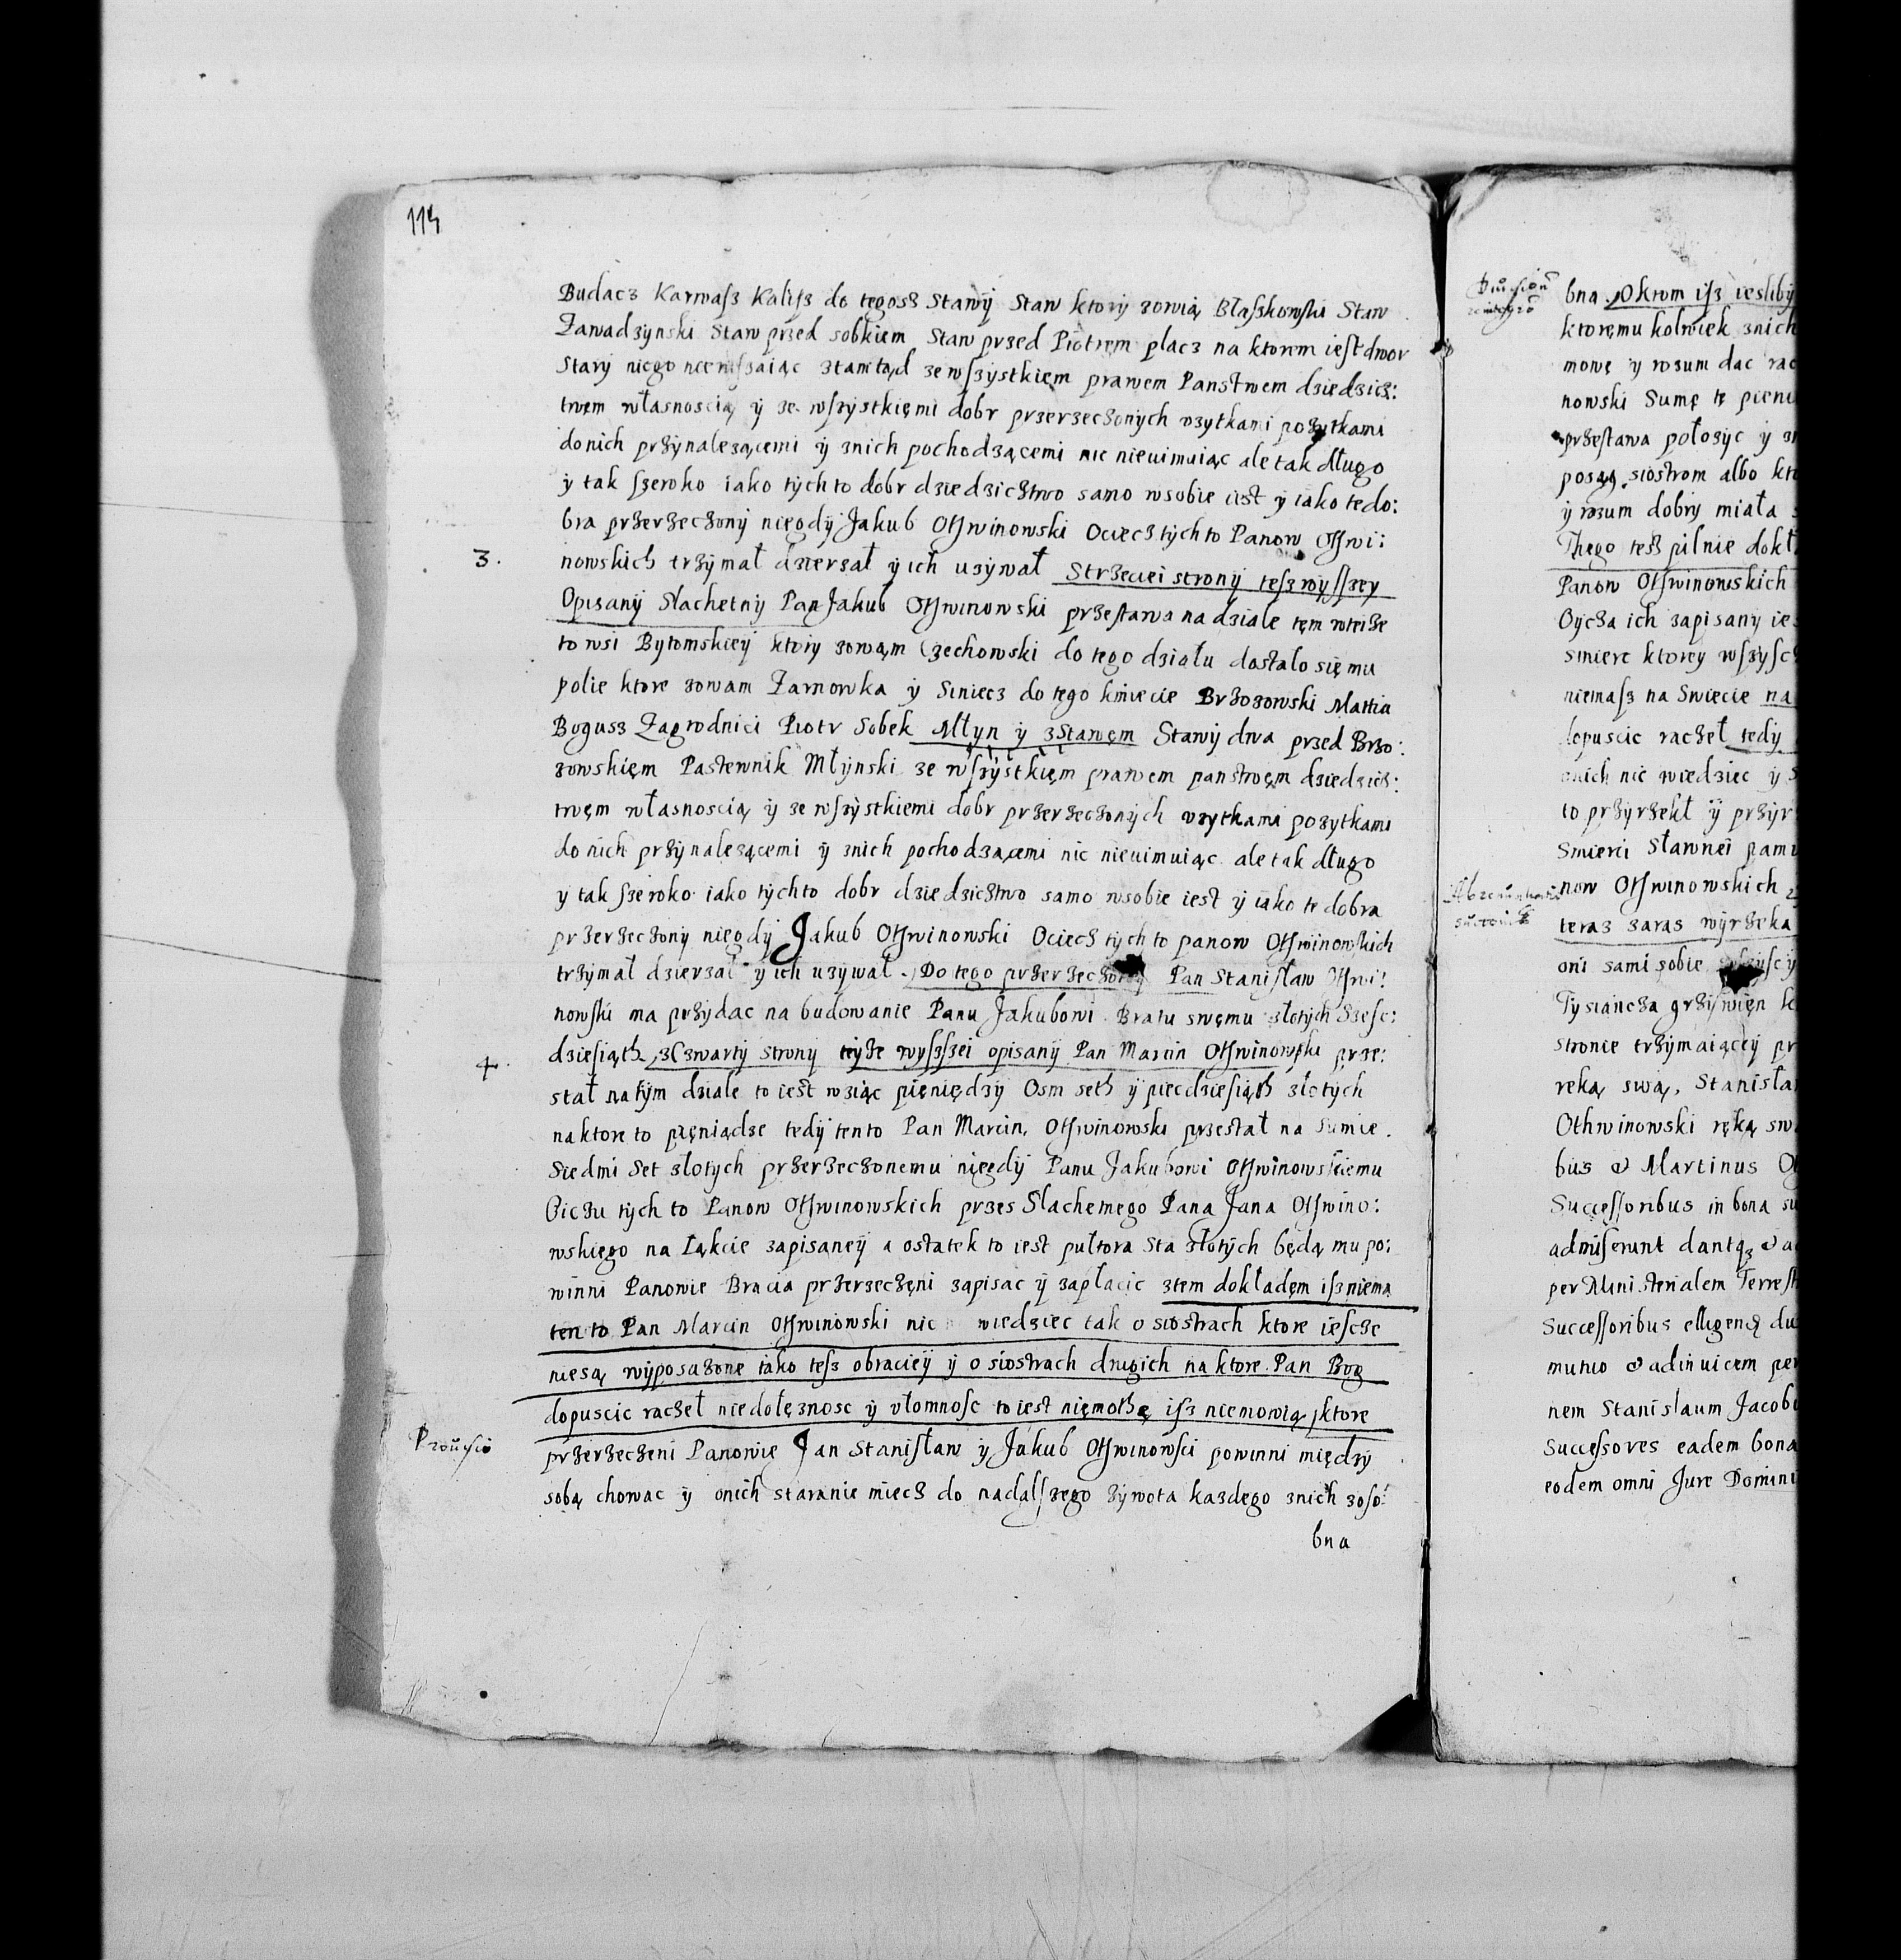 114
Budacz Karwasz Kalisz do tegosz Stawÿ Staw ktorÿ zowią Błaszkowski Staw
Zawadzynski Staw przed sobkiem Staw przed Piotrem placz na ktorem iest dwor
Starÿ niego stamtąd ze wszÿstkięm prawem Panstwem dziedzicz:
twęm własnoscią ÿ ze wszÿstkięmi dobr przerzeczonych vzytkami pozytkami
do nich przÿnalezącemi ÿ znich pochodzącemi nic nieuimuiąc ale tak długo
ÿ tak szeroko iako tÿch to dobr dziedzictwo samo wsobie iest ÿ iako te do:
bra przerzeczonÿ niegdÿ Jakub Othwinowski Ociecz tÿch to Panow Othwi:
3. nowskich trzÿmał dzierzał ÿ ich uzÿwał Strzeciei stronÿ tesz wÿsszey
Opisanÿ Slachetnÿ Pan Jakub Othwinowski przestawa na dziale tęm wteisze
to wsi Bytomskieÿ ktorÿ zowąm Czechowski do tego działu dostalo się mu
polie ktore zowam Zarnowka ÿ Siniecz do tego kmiecie Brzozowski Mattia
Bogusz Zagrodnici Piotr Sobek Młyn ÿ zStawęm Stawÿ dwa przed Brzo:
zowskięm Pastewnik Młÿnski ze wszÿstkięm prawem panstwęm dziedzicz:
twęm własnoscią ÿ ze wszÿstkiemi dobr przerzeczonÿch vzytkami pozytkami
do nich przÿnalezącemi ÿ znich pochodzącemi nic nieuimuiąc ale tak długo
y tak szeroko iako tÿchto dobr dziedzictwo samo wsobie iest ÿ iako te dobra
przerzeczonÿ niegdÿ Jakub Othwinowski Ociecz tÿch to panow Othwinowskich
trzÿmał dzierzał ÿ ich uzÿwał. Do tego przerzeczonÿ Pan Stanisław Othwi:
nowski ma przÿdac na budowanie Panu Jakubowi Bratu swęmu złotÿch Szesc:
4. dziesiąth, zCzwartÿ stronÿ teÿze wysszei opisanÿ Pan Marcin Othwinowski prze:
stał na tÿm dziale to iest wziąc pięniędzÿ Osm seth ÿ piecdziesiąth złotÿch
na ktore to pięniądze tedÿ ten to Pan Marcin, Othwinowski przestał na sumie.
Siedmi Set złotych przerzeczonemu niegdÿ Panu Jakubowi Othwinowskiemu
Oiczu tych to Panow Othwinowskich przes Slachetnego Pana Jana Othwino:
wskiego na Łąkcie zapisaneÿ a ostatek to iest pułtora sta złotÿch będą mu po:
winni Panowie Bracia przerzeczęni zapisac ÿ zapłacic ztem dokładęm isz niema
ten to Pan Marcin Othwinowski nic wiedziec tak o siostrach ktore iescze
niesą wÿposazone iako tesz obracieÿ ÿ o siostrach drugich na ktore Pan Bog
dopuscic raczeł niedołęznosc ÿ vłomnosc to iest nięmothę isz niemowią, ktore
przerzeczeni Panowie Jan Stanisław ÿ Jakub Othwinowsci powinni międzÿ
sobą chowac ÿ onich staranie miecz do nadalszego zÿwota kazdego znich zoso:
bna
bna. Okrom isz iesliby
ktoręmu kolwiek znich
mowę ÿ rozum dac rac
nowski Sumę tę pieni
przestawa połozÿc ÿ
posag siostrom albo kto
ÿ rozum dobry miała
Thego tesz pilnie dokł
Panow Othwinowskich
Oÿcza ich zapisanÿ ie
smierc ktorey wszÿsc
niemasz na Swiecie na
dopuscic raczeł tedy
onich nic wiedziec ÿ
to przÿrzekł ÿ przÿr
Smierci Sławnei pami
now Othwinowskich
teraz zaras wÿrzeka
oni sami sobie
Tysiancza grziwięn
stronie trzÿmaiącеÿ pr
reką swą, Stanisła
Othwinowski ręką sw
bus & Martinus
Successoribus in bona su
admiserunt dantqz &
per Ministerialem Terrest
Successoribus elligenɖ du
mutuo & adinuicem per
nem Stanislaum Jacobu
Successores eadem bona
eodem omni Jure Domini